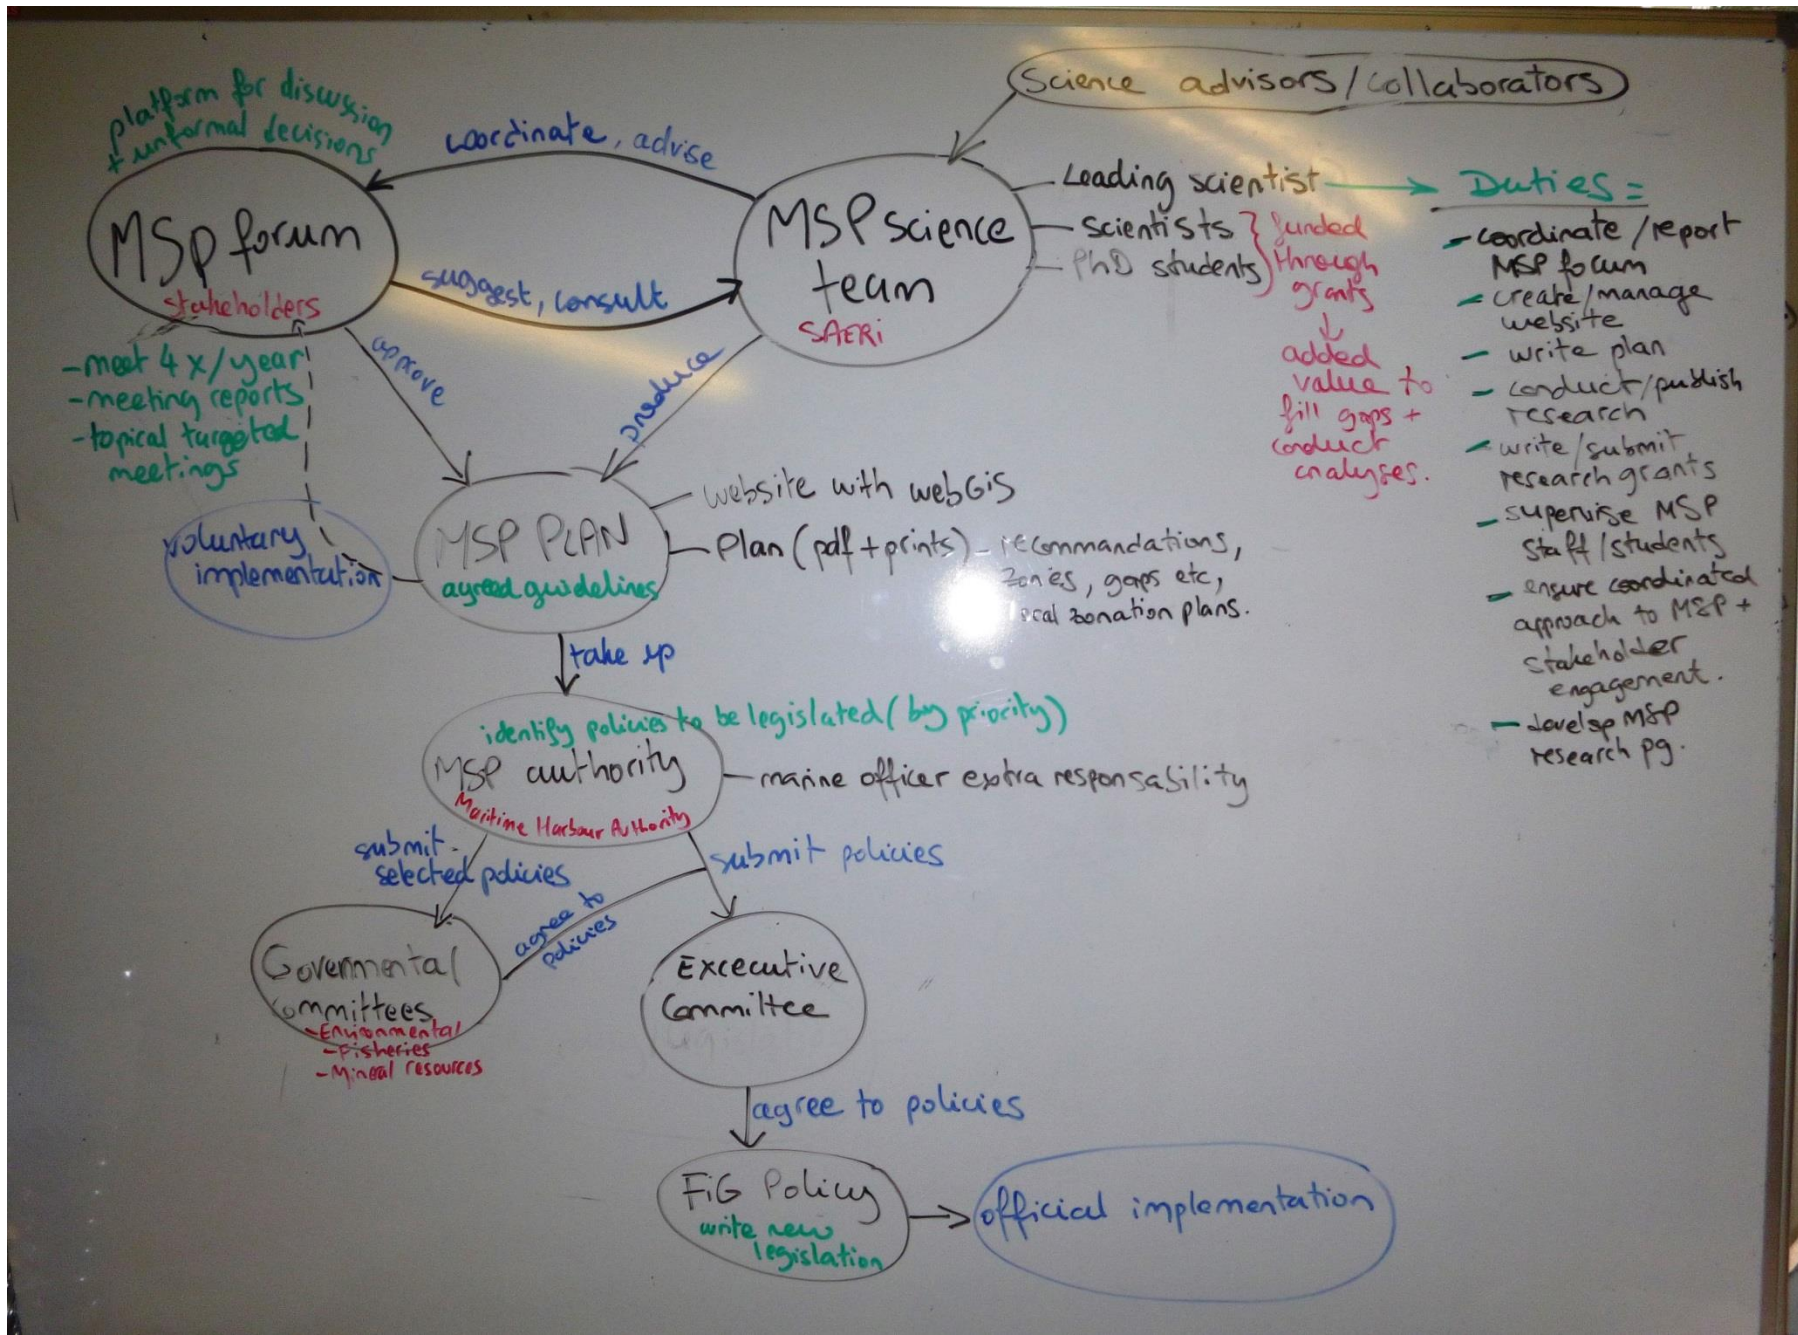 Science advisors/collaborators
platform for discussion
+ unformal decisions
coordinate, advise
MSP forum
stakeholders
suggest, consult
MSP science
team
SAERi
Leading scientist
scientists
PhD students
funded
through
grants
added
value to
fill gaps +
conduct
analyses.
Duties =
- coordinate/report
MSP forum
- create/manage
website
- write plan
- conduct/publish
research
- write/submit
research grants
- supervise MSP
staff/students
- ensure coordinated
approach to MSP +
stakeholder
engagement.
- develop MSP
research pg.
- meet 4x/year
- meeting reports
- topical targeted
meetings
aprove
produce
voluntary
implementation
MSP PLAN
agreed guidelines
website with webGiS
Plan (pdf + prints) - recommandations,
zones, gaps etc,
zonation plans.
take up
identify policies to be legislated (by priority)
MSP authority
Maritime Harbour Authority
marine officer extra responsability
submit
selected policies
submit policies
agree to
policies
Govermental
Committees
- Environmental
- Fisheries
- Mineal resources
Excecutive
Committee
agree to policies
FiG Policy
write new
legislation
official implementation